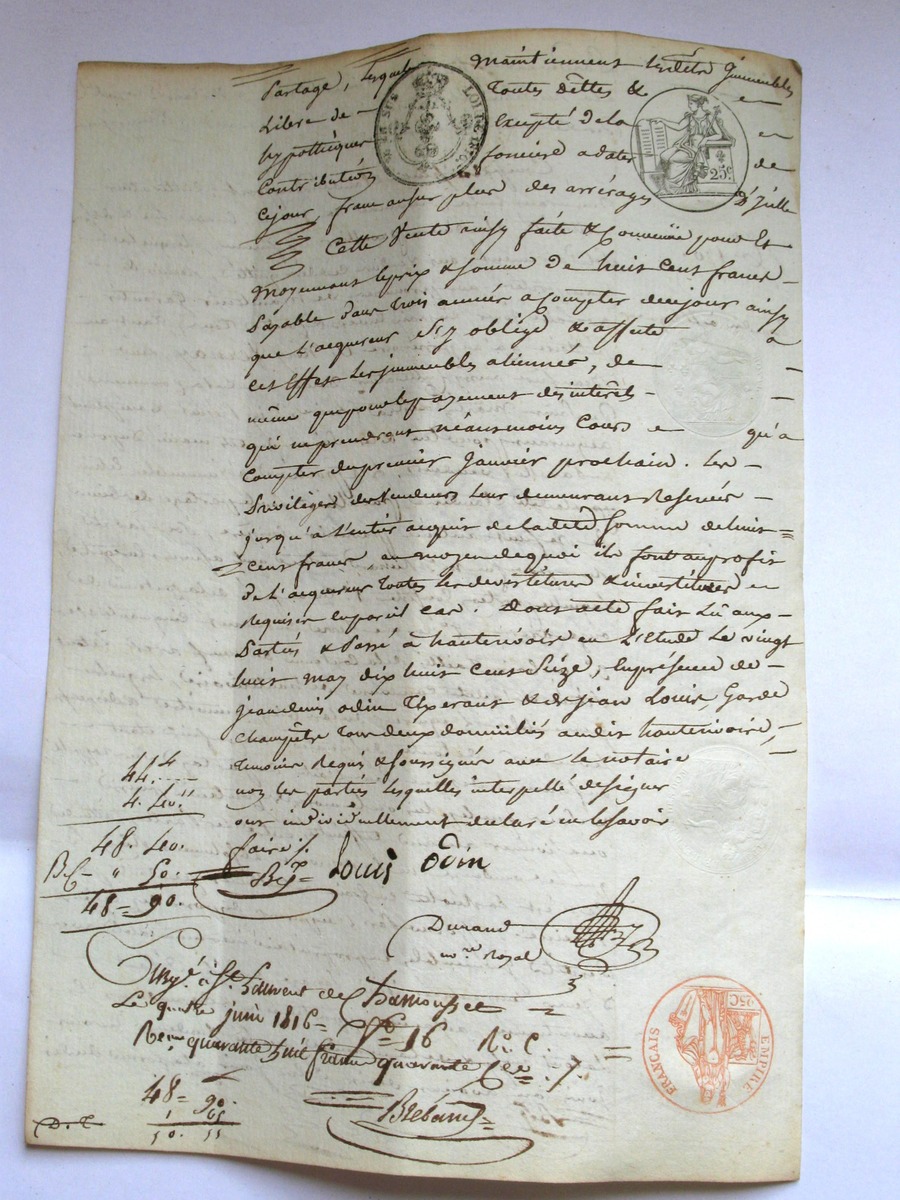 Partage, lesquels maintiennent lesdits immeubles
Libre de toutes dettes &
hypothèques excepté de la
contribution foncière a dater de
cejour, franc ausurplus des arrérages D'icelle
Cette Vente ainsy faite & Convenüe pour Et
moyennant leprix & Somme de huit cent francs
payable dans trois années a Compter decejour ainsy
que L'acquereur s'y oblige & affecte a
cet Effet les immeubles aliennés, de
même que pour lepayement des intérêts
qui neprendront néansmoins Cours qu'a
Compter dupremier janvier prochain. Les
Privilèges des Vendeurs leur demeurant Reservés
jusqu'à L'entier acquit de ladite Somme dehuit
cent francs, au moyen dequoi ils font auprofit
De L'acquereur toutes les devestitures & investitures en
Requises enpareil cas. Dont acte fait Lu aux
Parties & Passé à hauterivoire en L'etude Le vingt
huit may dix huit cent Seize, enprésence de
jean denis odin Tixerant & de jean Louis, Garde
champêtre tous deux domiciliés audit hauterivoire,
temoins Requis & soussignés avec le notaire
non les parties lesquelles interpellé designer
ont individuellement declaré nelesavoir
faire /.
Louis odin
44.
4. 40.
48. 40.
50.
48 = 90.
Durand
nre Royal
Enregé. à St Laurent de Chamousset
Le quatre juin 1816 = fo 16 Ro. C.
Reçu quarante huit francs quarante Ces. /.
48 = 90.
D. T.
LOI DE
25c.
EMPIRE FRANCAIS
25C